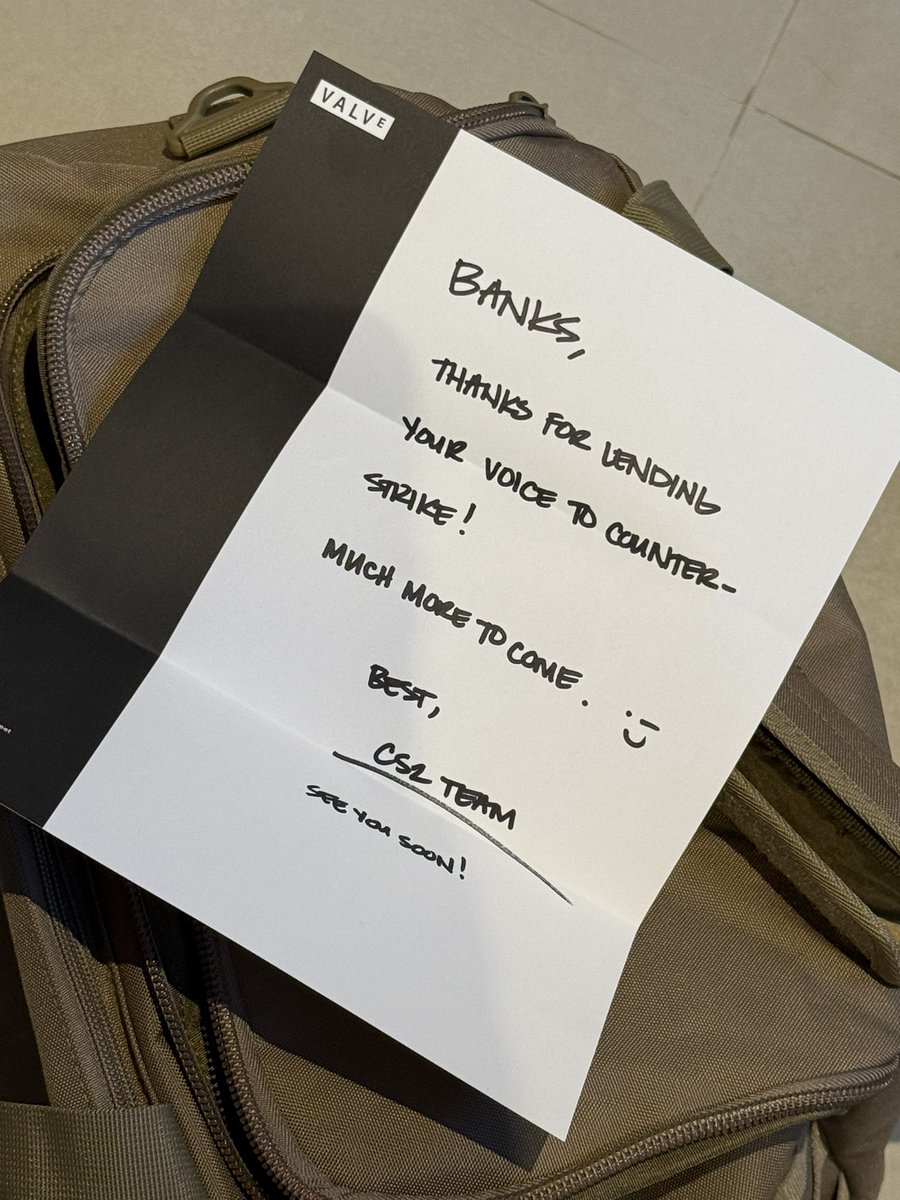 VALVE
BANKS,
THANKS FOR LENDING
YOUR VOICE TO COUNTER-
STRIKE!
MUCH MORE TO COME. :)
BEST,
CS2 TEAM
SEE YOU SOON!